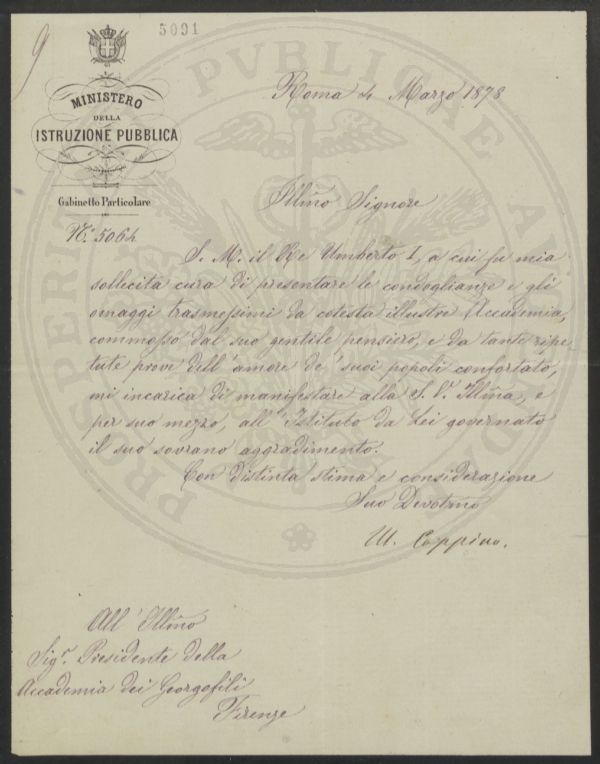 9
5091
MINISTERO
DELLA
ISTRUZIONE PUBBLICA
Gabinetto Particolare
N.° 5064
Roma 4 Marzo 1878
Illm̃o Signore
S. M. il Re Umberto I, a cui fu mia
sollecita cura di presentare le condoglianze e gli
omaggi trasmessimi da cotesta illustre Accademia,
commosso dal suo gentile pensiero, e da tante ripe-
tute prove dell'amore de' suoi popoli confortato,
mi incarica di manifestare alla S. V. Illm̃a, e
per suo mezzo, all'Istituto da Lei governato
il suo sovrano aggradimento.
Con distinta stima e considerazione
Suo Devotm̃o
M. Coppino.
All'Illm̃o
Sigr. Presidente della
Accademia dei Georgofili
Firenze
PROSPERITATI PUBLICAE